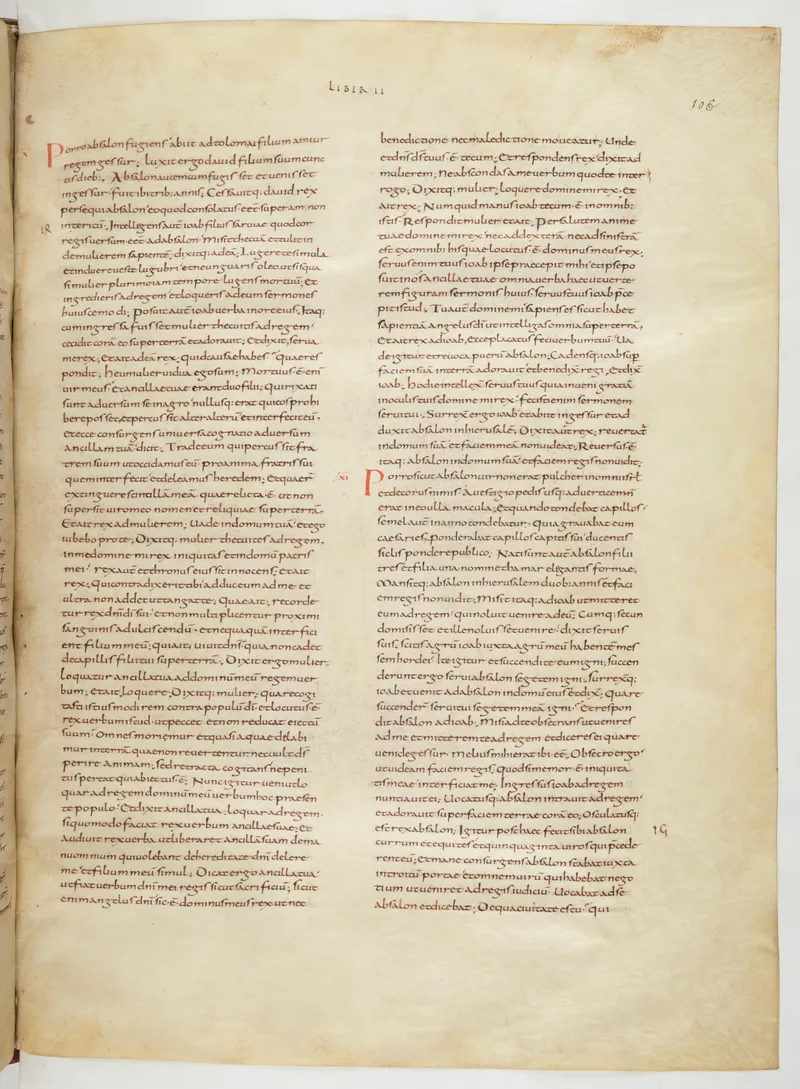 LIBER II
106
Porro absalon fugiens abiit ad tolomai filium amiur
regem gessur; luxit ergo dauid filium suum cunc
tis dieb; Absalon autem cum fugis set et uenisset
in gessur fuit ibi trib; annis, Cessauitq; dauid rex
persequi absalon eo quod consolatus eēt super amnon
interitu; Intellegens aut ioab filius saruiae quod cor
regis uersum eēt ad absalon misit thecuā et tulit in
de mulierem sapientē; dixitq; ad eā; Lugere te simula
et induere ueste lugubri et ne unguaris oleo ut sis qua
si mulier plurimo iam tempore lugens mortuū; Et
ingredieris ad regem et loqueris ad eum sermones
huiuscemodi; posuit aut ioab uerba in ore eius; Itaq;
cum ingressa fuisset mulier thecuites ad regem
cecidit corā eo super terrā et adorauit; Et dixit, serua
me rex; Et ait ad eā rex; quid causae habes quae res
pondit, heu mulier uidua ego sum; Mortuus ē enī
uir meus et ancillae tuae erant duo filii; qui rixati
sunt aduersum se in agro nullusq; erat qui eos prohi
bere posset, et percussit alter alterū et interfecit eū;
et ecce consurgens uniuersa cognatio aduersum
ancillam tuā dicit; Trade eum qui percussit fra
trem suum ut occidamus eū pro anima fratris sui
quem interfecit et deleamus heredem; Et quaerē
extinguere scintillā meā quae relicta ē ut non
supersit uiro meo nomen et reliquiae super terrā,
Et ait rex ad mulierem; Uade in domum tuā et ego
iubebo pro te; Dixitq; mulier thecuites ad regem,
in me domine mi rex iniquitas et in domū patris
mei rex aut et thronus eius sit innocens; Et ait
rex; qui contradixerit tibi adduc eum ad me et
ultra non addet ut tangat te; Quae ait, recorde
tur rex dnī dī sui et non multiplicentur proximi
sanguinis ad ulciscendū et nequaquā interfici
ent filium meū; qui ait; uiuit dns quia non cadet
de capillis filii tui super terrā; Dixit ergo mulier,
loquatur ancilla tua ad dominū meū regem uer
bum; Et ait, Loquere; Dixitq; mulier; quare cogi
tasti istiusmodi rem contra populū dī et locutus ē
rex uerbum istud ut peccet et non reducat eiectū
suum; Omnes morimur et quasi aquae delabi
mur in terrā quae non reuertentur nec uult dś
perire animam; sed retractat cogitans ne peni
tus pereat qui abiectus ē; Nunc igitur ueni ut lo
quar ad regem dominū meū uerbum hoc praesen
te populo; Et dixit ancilla tua; loquar ad regem
si quo modo faciat rex uerbum ancillae suae; Et
audiuit rex uerba ut liberaret ancillā suam de ma
nu omnium qui olebant de hereditate dnī delere
me et filium meū simul; Dicat ergo ancilla tua
ut fiat uerbum dnī mei regis sicut sacrificiū; sicut
enim angelus dnī sic ē dominus meus rex ut nec
benedictione nec maledictione moueatur; Unde
et dns ds tuus ē tecum; Et respondens rex dixit ad
mulierem; ne abscondas a me uerbum quod te inter
rogo; Dixitq; mulier; loquere domine mi rex; Et
ait rex; Numquid manus ioab tecum ē in omnib;
istis Respondit mulier et ait; Per salutem anime
tuae domine mi rex nec ad dexterā nec ad sinistrā
est ex omnib; his quae locutus ē dominus meus rex;
seruus enim tuus ioab ipse praecepit mihi et ipse po
suit in os ancillae tuae omnia uerba haec ut uerte
rem figuram sermonis huius seruus tuus ioab pce
pit istud; Tu aut domine mi sapiens es sicut habet
sapientiā angelus dī ut intelligas omnia super terrā,
Et ait rex ad ioab, Ecce placatus feci uerbum tuū Ua
de igitur et reuoca puerū absalon; Cadensq; ioab sup
faciem suā in terrā adorauit et benedixit regi, et dixit
ioab, hodie intellexit seruus tuus quia inueni gratiā
in oculis tuis domine mi rex fecisti enim sermonem
serui tui; Surrexit ergo ioab et abiit in gessur et ad
duxit absalon in hierusalē; Dixit aut rex; reuertat
in domum suā et faciem meā non uideat; Reuersus ē
itaq; absalon in domum suā et faciem regis non uidit;
xi
Porro sicut absalon uir non erat pulcher in omni isrł
et decorus nimis, A uestigio pedis usq; ad uerticem n
erat in eo ulla macula; Et quando tondebat capillos
semel aut in anno tondebatur quia grauabat eum
caesaries, ponderabat capillos capitis sui ducentis
siclis pondere publico, Nati sunt aut absalon filii
tres et filia una nomine thamar elegantis formae;
Mansitq; absalon in hierusalem duob; annis et faci
em regis non uidit; Misit itaq; ad ioab ut mitteret
eum ad regem qui noluit uenire ad eū; Cumq; secun
do misisset et ille noluisset uenire dixit seruis
suis, scitis agrū ioab iuxta agrū meū habentē mes
sem hordei Ite igitur et succendite eum igni, succen
derunt ergo serui absalon segetem igni; surrexitq;
ioab et uenit ad absalon in domū eius et dixit; quare
succenderunt serui tui segetem meā igni Et respon
dit absalon ad ioab, Misi ad te obsecrans ut uenires
ad me et mitterem te ad regem et diceres ei quare
ueni de gessur melius mihi erat ibi eē; Obsecro ergo
ut uideam faciem regis, quod si memor ē iniquita
tis meae interficiat me; Ingressus ioab ad regem
nuntiauit ei; Uocatusq; absalon intrauit ad regem
et adorauit super faciem terrae corā eo; Osculatusq;
est rex absalon; Igitur post haec fecit sibi absalon
currum et equites et quinquaginta uiros qui pcede
rent eū; Et mane consurgens absalon stabat iuxta
introitū portae et omnem uirū qui habebat nego
tium ut ueniret ad regis iudiciū Uocabat ad se
absalon et dicebat; De qua ciuitate es tu qui